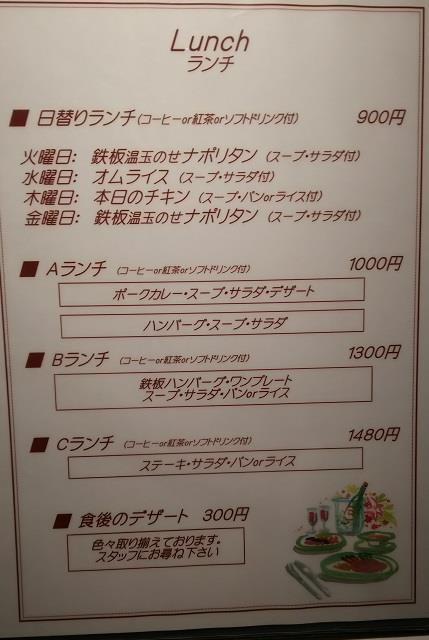 Lunch
ランチ
■ 日替りランチ(コーヒーor紅茶orソフトドリンク付) 900円
火曜日: 鉄板温玉のせナポリタン (スープ・サラダ付)
水曜日: オムライス (スープ・サラダ付)
木曜日: 本日のチキン (スープ・パンorライス付)
金曜日: 鉄板温玉のせナポリタン (スープ・サラダ付)
■ Aランチ (コーヒーor紅茶orソフトドリンク付) 1000円
ポークカレー・スープ・サラダ・デザート
ハンバーグ・スープ・サラダ
■ Bランチ (コーヒーor紅茶orソフトドリンク付) 1300円
鉄板ハンバーグ・ワンプレート
スープ・サラダ・パンorライス
■ Cランチ (コーヒーor紅茶orソフトドリンク付) 1480円
ステーキ・サラダ・パンorライス
■ 食後のデザート 300円
色々取り揃えております。
スタッフにお尋ね下さい